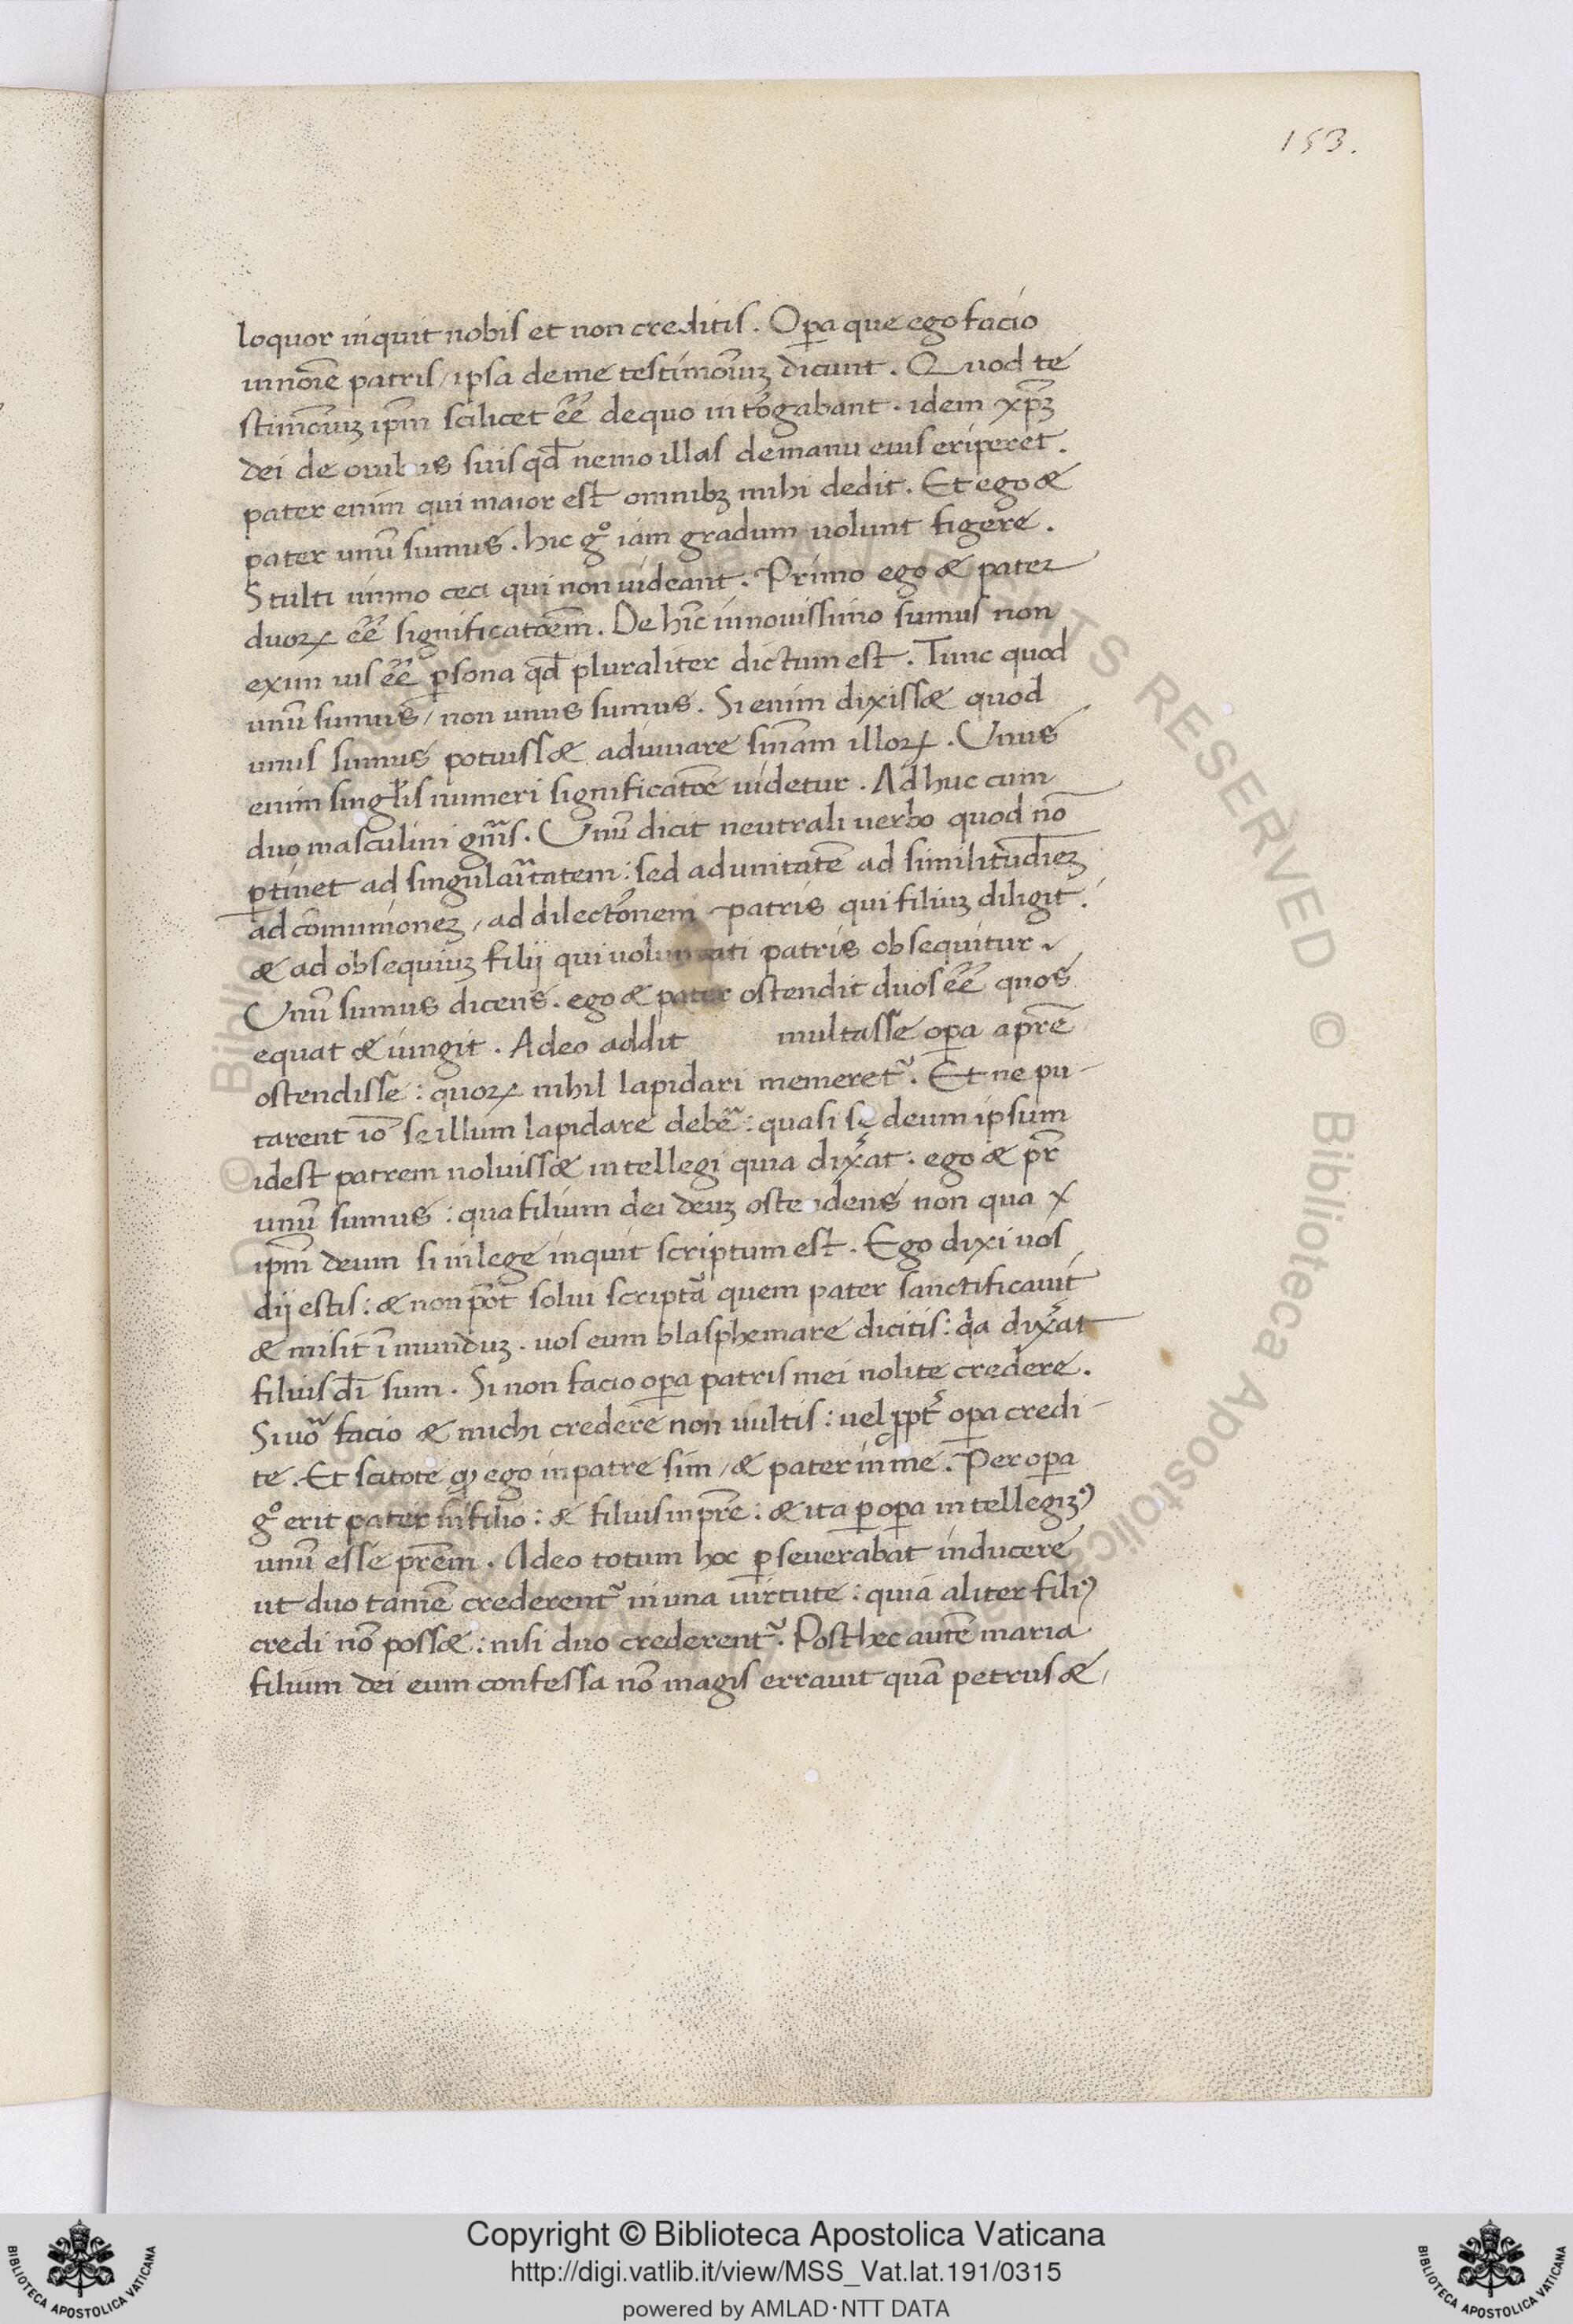 153.
loquor inquit nobis et non creditis. Oꝑa que ego facio
in noīe patris / ipsa de me testimoīuꝫ dicunt. Quod te
stimoīuꝫ ip̄m scilicet ēē de quo intērogabant. idem xp̄ꝫ
dei de ouibus suis qđ nemo illas de manu eius eriperet.
pater enim qui maior est omnibꝫ mihi dedit. Et ego &
pater unū sumus. hic gͦ iam gradum uolunt figere.
Stulti immo ceci qui non uideant. Primo ego & pater
duoꝝ ēē significatōēm. De hīc in nouissimo sumus non
ex un ius ēē ꝑsona qđ pluraliter dictum est. Tunc quod
unū sumus / non unus sumus. Si enim dixiss& quod
unus sumus potuiss& adiuuare sn̄iam illoꝝ. Unus
enim singłis numeri significatōe uidetur. Ad huc cum
duo masculini gn̄is. Unū dicit neutrali uerbo quod nō
ꝑtinet ad singularītatem: sed ad unitatē ad similitudīeꝫ
ad cōmunioneꝫ / ad dilectōnem patris qui filiuꝫ diligit.
& ad obsequiuꝫ filij qui voluntati patris obsequitur
Unū sumus dicens. ego & pater ostendit duos ēē quos
equat & iungit. Adeo addit multasse oꝑa a pr̄e
ostendisse: quoꝝ nihil lapidari memeret᷑. Et ne pu-
tarent iō se illum lapidare debe᷑: quasi se deum ipsum
idest patrem uoluiss& intellegi quia dixāt. ego & pr̄
unū sumus: qua filium dei deuꝫ ostendens non qua x
ip̄m deum si in lege inquit scriptum est. Ego dixi uos
dij estis: & non pōt solui scriptā quem pater sanctificauit
& misit ī munduꝫ. uos eum blasphemare dicitis: qa dixāt
filius dī sum. Si non facio oꝑa patris mei nolite credere.
Si uō facio & michi credere non uultis: uel ꝓpt̄ oꝑa credi-
te. Et scitote ꝙ ego in patre sim / & pater in me. Per oꝑa
gͦ erit pater in filio: & filius in pr̄e: & ita ꝑ oꝑa intellegimꝰ
unū esse pr̄em. Adeo totum hoc ꝑseuerabat inducere
ut duo tamē crederent᷑ in una uirtute: quia aliter filiꝰ
credi nō poss&: nisi duo crederent᷑. Post hec autē maria
filium dei eum confessa nō magis errauit quā petrus &
Copyright © Biblioteca Apostolica Vaticana
http://digi.vatlib.it/view/MSS_Vat.lat.191/0315
powered by AMLAD·NTT DATA